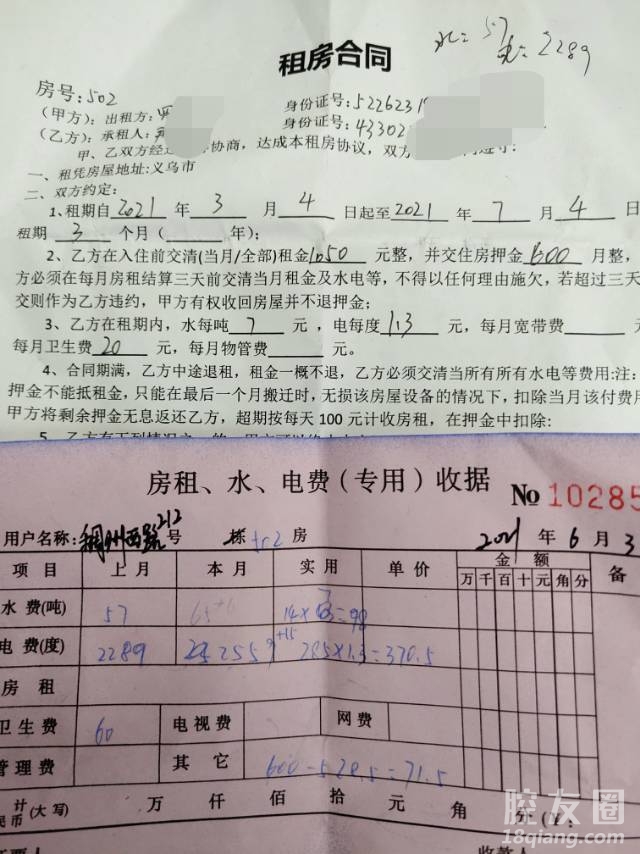 水：57
电：2289
租房合同
房号：502
（甲方）：出租方：
身份证号：52262319
（乙方）：承租人：
身份证号：43302
甲、乙双方经 协商，达成本租房协议，双方
一、租凭房屋地址：义乌市
二、双方约定：
1、租期自 2021 年 3 月 4 日起至 2021 年 7 月 4 日
租期 3 个月（ 年）；
2、乙方在入住前交清(当月/全部)租金 1050 元整，并交住房押金 600 月整，
方必须在每月房租结算三天前交清当月租金及水电等，不得以任何理由施欠，若超过三天
交则作为乙方违约，甲方有权收回房屋并不退押金；
3、乙方在租期内，水每吨 7 元，电每度 1.3 元，每月宽带费 元，
每月卫生费 20 元，每月物管费 元。
4、合同期满，乙方中途退租，租金一概不退，乙方必须交清当所有所有水电等费用:注：
押金不能抵租金，只能在最后一个月搬迁时，无损该房屋设备的情况下，扣除当月该付费用
甲方将剩余押金无息返还乙方，超期按每天 100 元计收房租，在押金中扣除:
房租、水、电费（专用）收据 No 10285
用户名称: 稠州西路212号 栋 502 房 2021 年 6 月 3
项 目 上 月 本 月 实 用 单 价 金 额 备
万 千 百 十 元 角 分
水 费(吨) 57 65+6 14×7=98
电 费(度) 2289 2559+15 285×1.3=370.5
房 租
卫生费 60 电视费 网费
管理费 其 它 600-528.5=71.5
计
民币(大写) 万 仟 佰 拾 元 角 分(¥:
收款人
腔友圈
18qiang.com